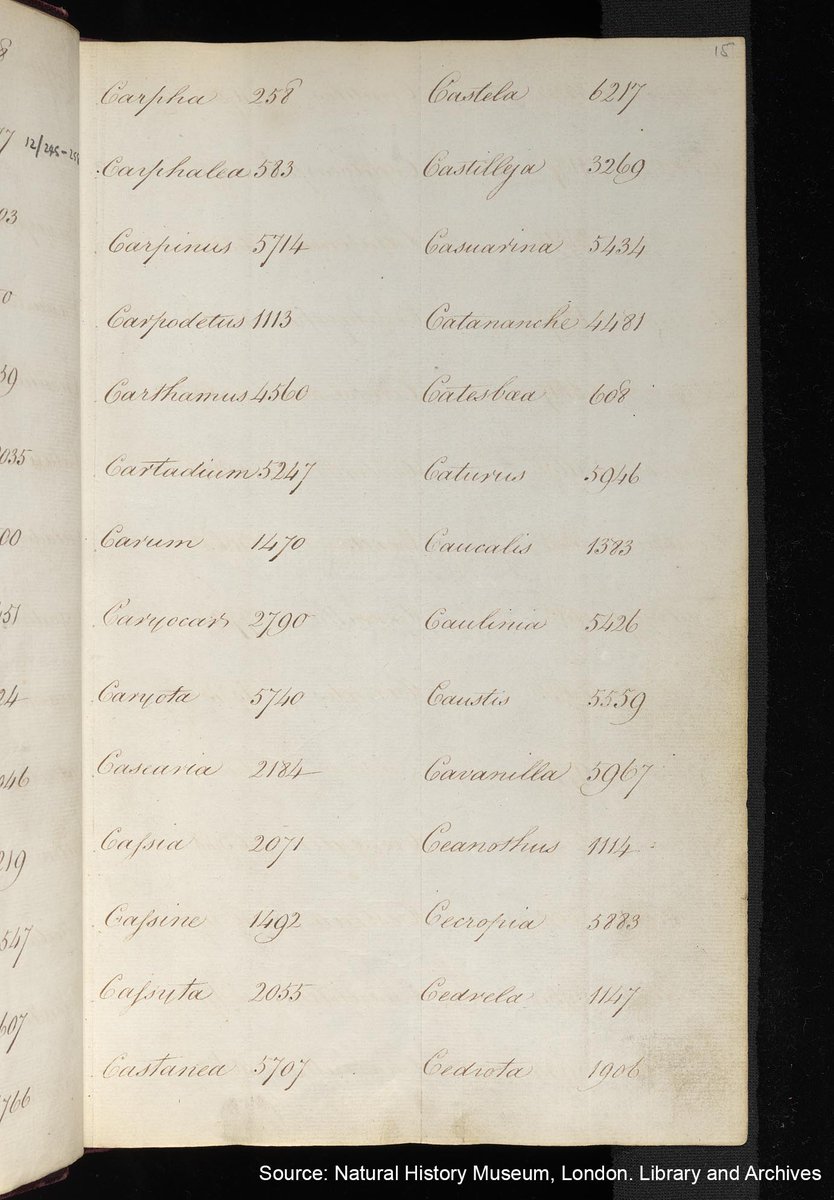 15
Carpha 258
Carphalea 583
Carpinus 5714
Carpodetus 1113
Carthamus 4560
Cartadium 5247
Carum 1470
Caryocar 2790
Caryota 5740
Casearia 2184
Caſsia 2071
Caſsine 1492
Caſsyta 2055
Castanea 5707
Castela 6217
Castilleja 3269
Casuarina 5434
Catananche 4481
Catesbæa 608
Caturus 5946
Caucalis 1383
Caulinia 5426
Caustis 5559
Cavanilla 5967
Ceanothus 1114
Cecropia 5883
Cedrela 1147
Cedrota 1906
Source: Natural History Museum, London. Library and Archives